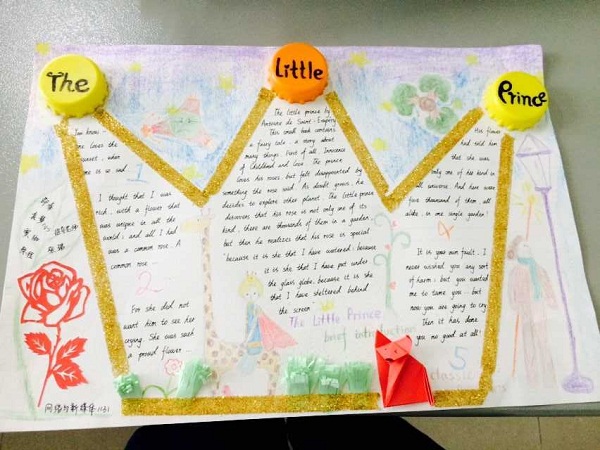 The
Little
Prince
one loves the
sunset, when
one is so sad.
1
I thought that I was
rich, with a flower that
was unique in all the
world; and all I had
was a common rose. A
common rose...
2
For she did not
want him to see her
crying. She was such
a proud flower...
The little prince by
Antoine de Saint-Exupéry
This small book contains
a fairy tale, a story about
many things. First of all, Innocence
of Childhood and love. The prince
loves his roses, but felt disappointed by
something the rose said. As doubt grows, he
decides to explore other planet. The little prince
discovers that his rose is not only one of its
kind, there are thousands of them in a garden,
but then he realizes that his rose is special
because it is she that I have watered; because
it is she that I have put under
the glass globe; because it is she
that I have sheltered behind
the screen.
The Little Prince
brief introduction
His flower
had told him
that she was
only one of her kind in
all universe. And here were
five thousand of them, all
alike, in one single garden!
4
It is your own fault, I
never wished you any sort
of harm; but you wanted
me to tame you, but
now you are going to cry.
Then it has done
you no good at all!
5
classic
网络与新媒体1151